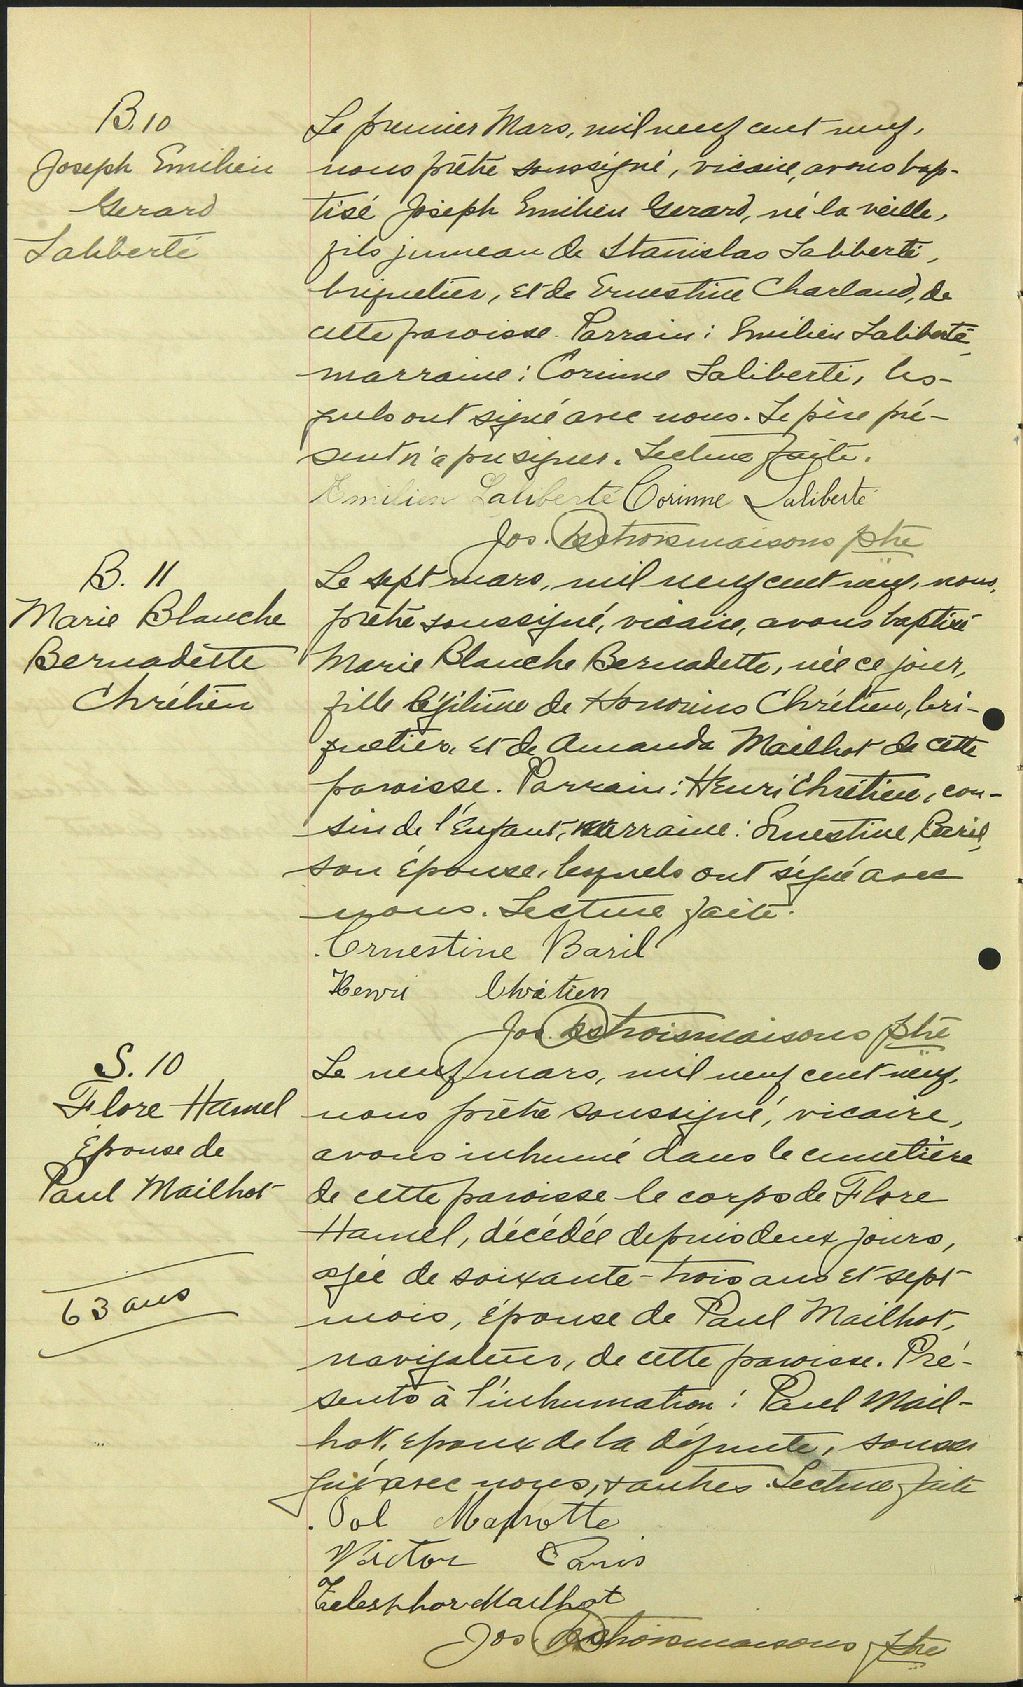 B. 10
Joseph Emilien
Gerard
Laliberté
Le premier Mars, mil neuf cent neuf,
nous prêtre soussigné, vicaire, avons bap-
tisé Joseph Emilien Gerard, né la veille,
fils jumeau de Stanislas Laliberté,
briquetier, et de Ernestine Charland, de
cette paroisse. Parrain : Emilien Laliberté,
marraine : Corinne Laliberté, les-
quels ont signé avec nous. Le père pré-
sent n'a pu signer. Lecture faite.
Emilien Laliberte Corinne Laliberté
Jos. Destroismaisons ptre
B. 11
Marie Blanche
Bernadette
Chrétien
Le sept mars, mil neuf cent neuf, nous,
prêtre soussigné, vicaire, avons baptisé
Marie Blanche Bernadette, née ce jour,
fille légitime de Honorius Chrétien, bri-
quetier, et de Amanda Mailhot de cette
paroisse. Parrain : Henri Chrétien, cou-
sin de l'enfant, marraine : Ernestine Baril,
son épouse, lesquels ont signé avec
nous. Lecture faite.
Ernestine Baril
Henri Chrétien
Jos. Destroismaisons ptre
S. 10
Flore Hamel
Épouse de
Paul Mailhot
63 ans
Le neuf mars, mil neuf cent neuf,
nous prêtre soussigné, vicaire,
avons inhumé dans le cimetière
de cette paroisse le corps de Flore
Hamel, décédée depuis deux jours,
agée de soixante-trois ans et sept
mois, épouse de Paul Mailhot,
navigateur, de cette paroisse. Pré-
sents à l'inhumation : Paul Mail-
hot, epoux de la défunte, soussi
gné avec nous, & autres. Lecture faite
Pol
Victor Paris
Telesphor Mailhot
Jos. Destroismaisons ptre